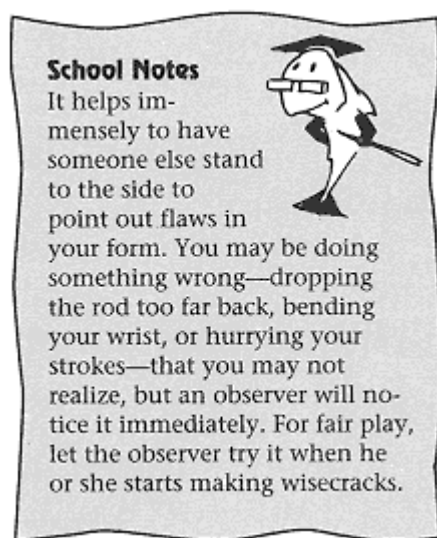 School Notes
It helps im-
mensely to have
someone else stand
to the side to
point out flaws in
your form. You may be doing
something wrong—dropping
the rod too far back, bending
your wrist, or hurrying your
strokes—that you may not
realize, but an observer will no-
tice it immediately. For fair play,
let the observer try it when he
or she starts making wisecracks.